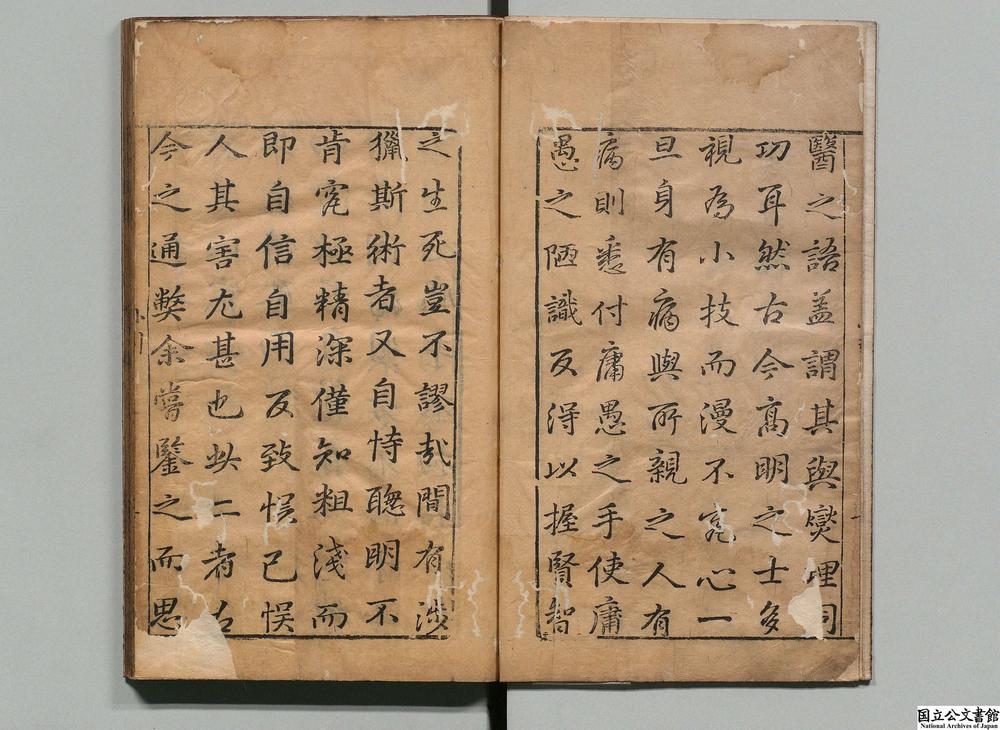 醫之語盖謂其與燮理同
功耳然古今髙明之士多
視為小技而漫不究心一
旦身有病與所親之人有
病則悉付庸愚之手使庸
愚之陋識反得以握賢智
之生死豈不謬㢤間有涉
獵斯術者又自恃聦明不
肯究極精深僅知粗淺而
即自信自用反致悞己悞
人其害尤甚也此二者古
今之通獘余嘗鑒之而思
国立公文書館
National Archives of Japan